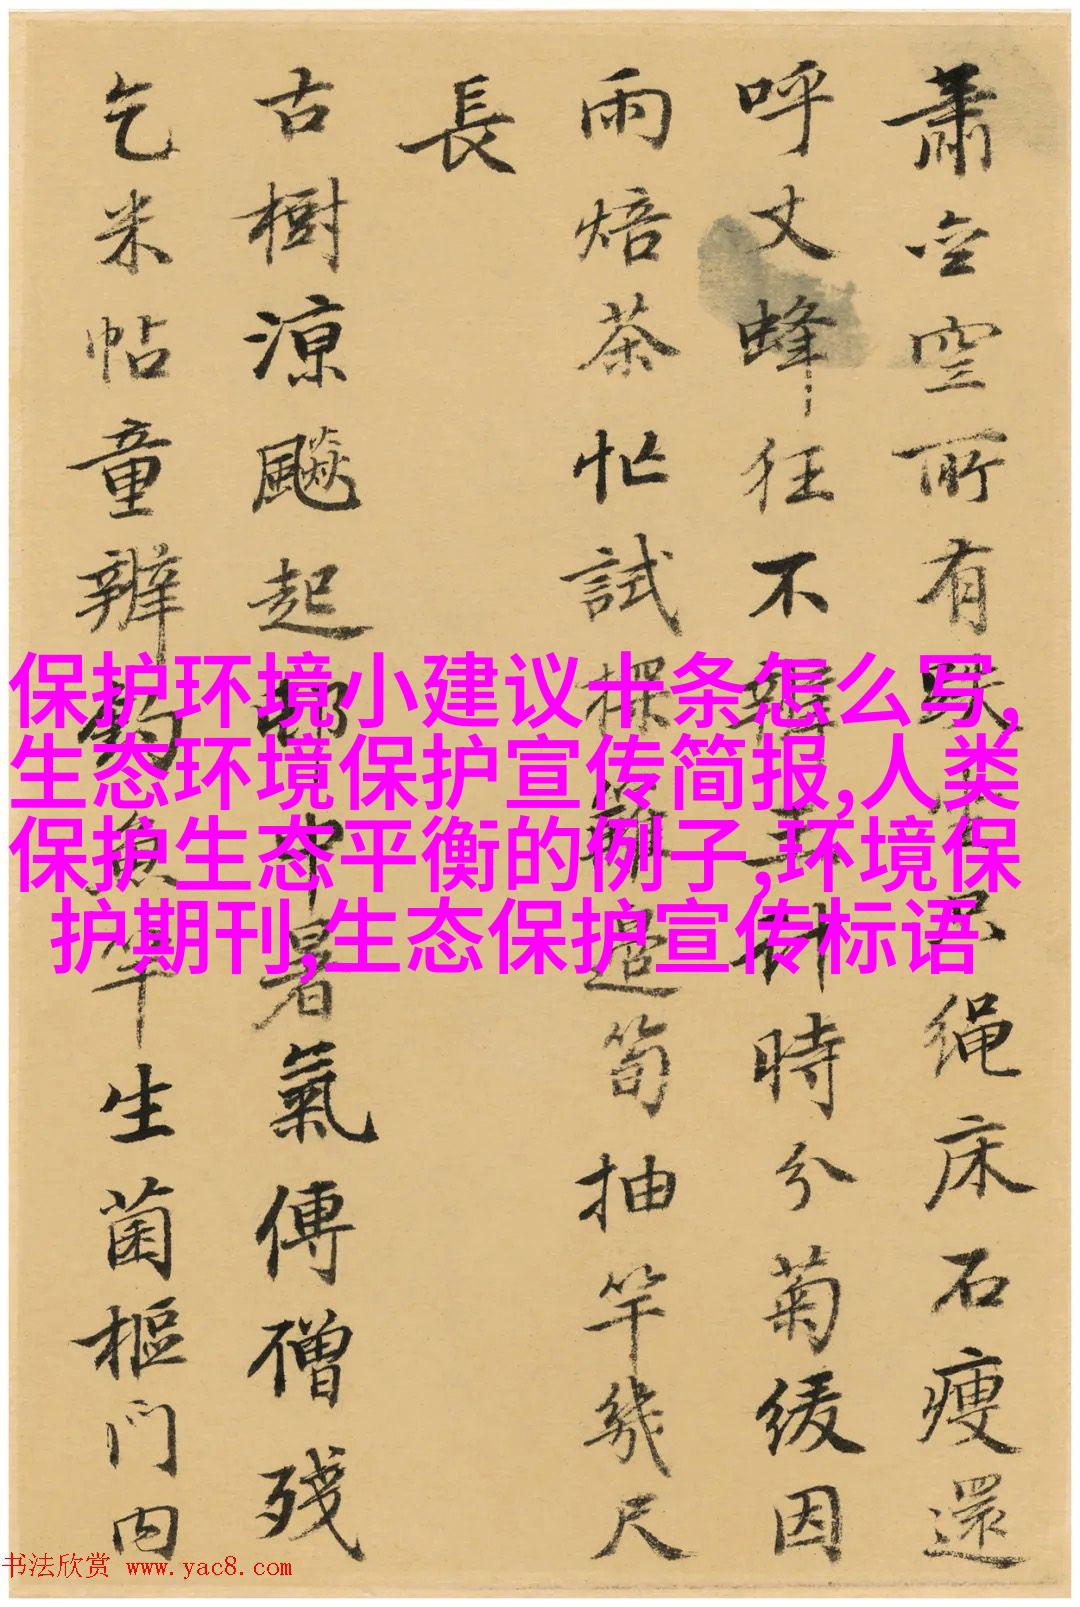 肅空空所有坐绳床石瘦還
呼丈蜂狂不時分菊缓因
雨焙茶忙試邉筍抽竿幾尺
長
古樹涼飈起中暑氣傅僧残
乞米帖童辨釣魚竿生菌樞門内
保护环境小建议十条怎么写,
生态环境保护宣传简报,人类
保护生态平衡的例子,环境保
护期刊,生态保护宣传标语
书法欣赏 www.yac8.com